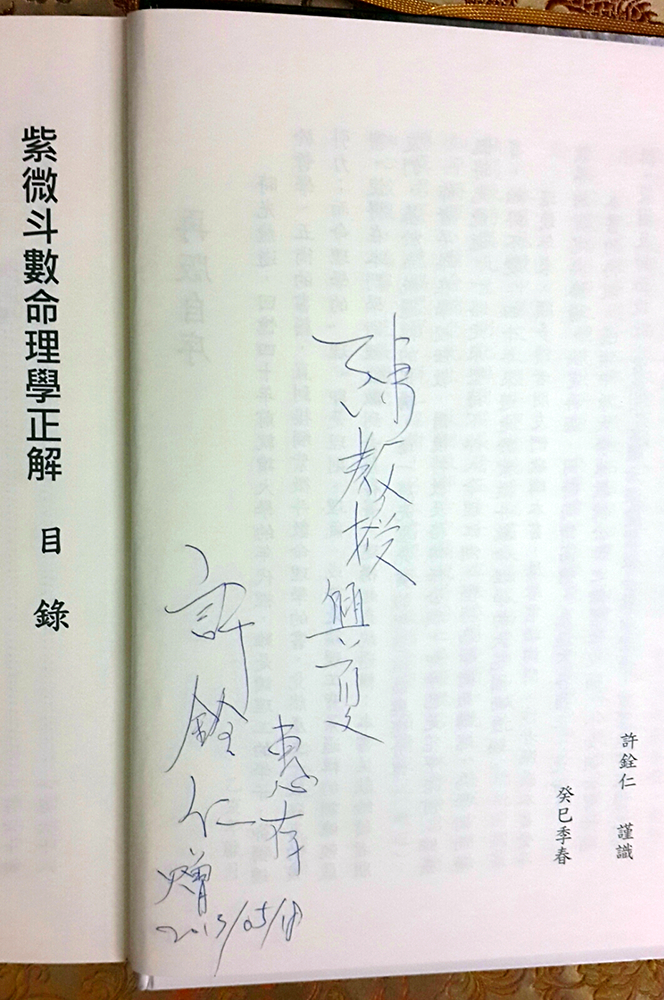 許銓仁 謹識
癸巳季春
教授興夏
惠存
許銓仁
贈
2013/05/18
紫微斗數命理學正解 目錄